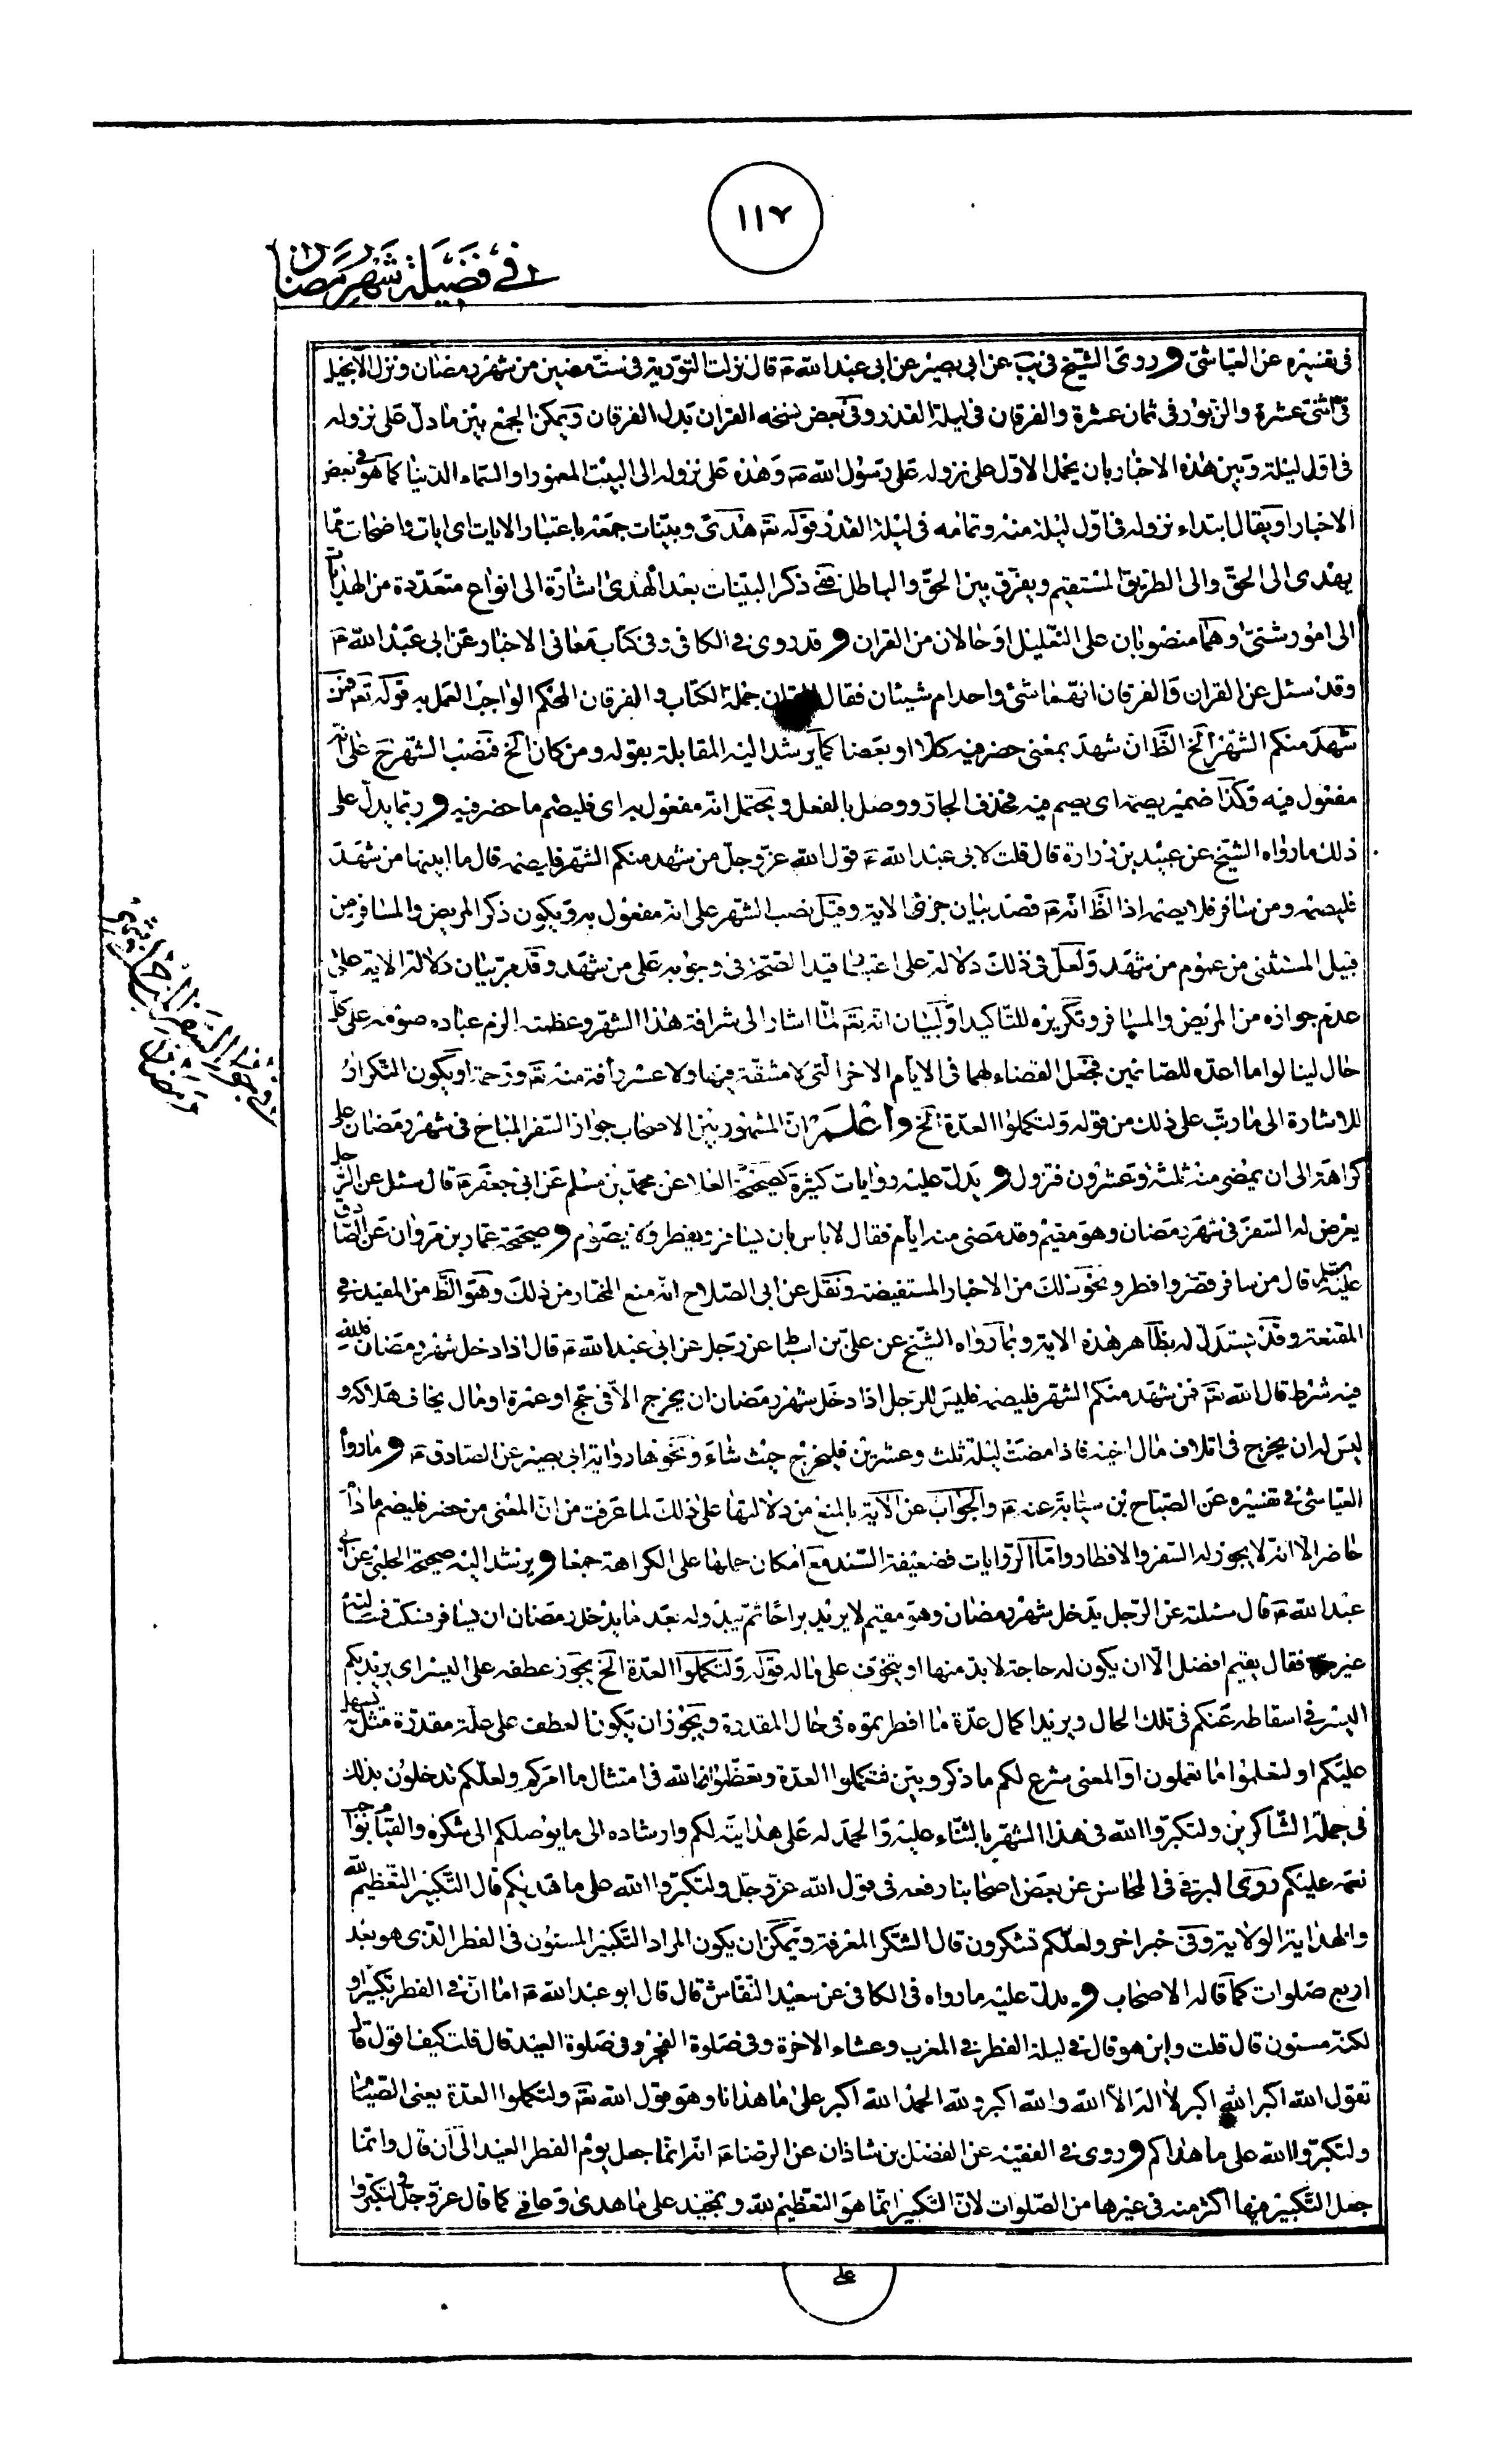 ١١٧
في فضيلة شهر رمضان
في تفسيره عن العياشي و روى الشيخ في يب عن ابى بصير عن ابى عبد الله ع قال نزلت التورية في ست مضين من شهر رمضان ونزل الانجيل
في اثنتى عشرة والزبور في ثمان عشرة والفرقان في ليلة القدر وفى بعض نسخه القران بدل الفرقان ويمكن الجمع بين ما دل على نزوله
في اول ليلة وبين هذه الاخبار بان يحمل الاول على نزوله على رسول الله ص وهذه على نزوله الى البيت المعمور او السماء الدنيا كما هو في بعض
الاخبار او يقال ابتداء نزوله في اول ليلة منه وتمامه في ليلة القدر قوله تع هدى وبينات جمعه باعتبار الايات اى ايات واضحات مما
يهدى الى الحق والى الطريق المستقيم ويفرق بين الحق والباطل ففي ذكر البينات بعد الهدى اشارة الى انواع متعددة من الهدايات
الى امور شتى وهما منصوبان على التعليل او حالان من القران و قد روى في الكافي وفى كتاب معاني الاخبار عن ابى عبد الله ع
وقد سئل عن القران والفرقان انهما شئ واحد ام شيئان فقال القران جملة الكتاب و الفرقان المحكم الواجب العمل به قوله تع فمن
شهد منكم الشهر الخ الظ ان شهد بمعنى حضر فيه كلا او بعضا كما يرشد اليه المقابلة بقوله ومن كان الخ فنصب الشهر ح على انه
مفعول فيه وكذا ضمير يصمه اى يصم فيه فحذف الجار ووصل بالفعل ويحتمل انه مفعول به اى فليصم ما حضر فيه و ربما يدل على
ذلك ما رواه الشيخ عن عبيد بن زرارة قال قلت لابى عبد الله ع قول الله عز وجل من شهد منكم الشهر فليصمه قال ما ابينها من شهد
فليصمه ومن سافر فلا يصمه اذ الظ انه ع قصد بيان جزئي الاية وقيل نصب الشهر على انه مفعول به ويكون ذكر المريض والمسافر من
قبيل المستثنى من عموم من شهد ولعل في ذلك دلالة على اعتبار قيد الصحة في وجوبه على من شهد وقد مر بيان دلالة الاية على
عدم جوازه من المريض والمسافر وتكريره للتاكيد او لبيان انه تع لما اشار الى شرافة هذا الشهر وعظمته الزم عباده صومه على كل
حال لينالوا ما اعده للصائمين فجعل القضاء لهما في الايام الاخر التى لا مشقة فيها ولا عسر رأفة منه تع ورحمة او يكون التكرار
للاشارة الى ما رتب على ذلك من قوله ولتكملوا العدة الخ واعلم ان المشهور بين الاصحاب جواز السفر المباح في شهر رمضان على
كراهة الى ان يمضى منه ثلثة وعشرون فتزول و يدل عليه روايات كثيرة كصحيحة العلا عن محمد بن مسلم عن ابى جعفر ع قال سئل عن الرجل
يعرض له السفر في شهر رمضان وهو مقيم وقد مضى منه ايام فقال لا باس بان يسافر ويفطر ولا يصوم و صحيحة عمار بن مروان عن الصادق
عليه السلم قال من سافر قصر وافطر ونحو ذلك من الاخبار المستفيضة ونقل عن ابى الصلاح انه منع المختار من ذلك وهو الظ من المفيد في
المقنعة وقد يستدل له بظاهر هذه الاية وبما رواه الشيخ عن على بن اسباط عن رجل عن ابى عبد الله ع قال اذا دخل شهر رمضان فلله
فيه شرط قال الله تع فمن شهد منكم الشهر فليصمه فليس للرجل اذا دخل شهر رمضان ان يخرج الا في حج او عمرة او مال يخاف هلاكه و
ليس له ان يخرج في اتلاف مال اخيه فاذا مضت ليلة ثلث وعشرين فليخرج حيث شاء ونحوها رواية ابى بصير عن الصادق ع و ما رواه
العياشي في تفسيره عن الصباح بن سيابة عنه ع والجواب عن الاية بالمنع من دلالتها على ذلك لما عرفت من ان المعنى من حضر فليصم ما دام
حاضرا لا انه لا يجوز له السفر والافطار واما الروايات فضعيفة السند مع امكان حملها على الكراهة جمعا و يرشد اليه صحيحة الحلبي عن ابى
عبد الله ع قال سئلته عن الرجل يدخل شهر رمضان وهو مقيم لا يريد براحا ثم يبدو له بعد ما يدخل رمضان ان يسافر فسكت فسئلته
غير مرة فقال يقيم افضل الا ان يكون له حاجة لا بد منها او يتخوف على ماله قوله ولتكملوا العدة الخ يجوز عطفه على اليسر اى يريد بكم
اليسر في اسقاطه عنكم في تلك الحال ويريد اكمال عدة ما افطرتموه في حال المقدرة ويجوز ان يكون العطف على علة مقدرة مثل ليسهل
عليكم او لتعلموا ما تعملون او المعنى شرع لكم ما ذكر وبين فتكملوا العدة وتعظموا الله في امتثال ما امركم ولعلكم تدخلون بذلك
في جملة الشاكرين ولتكبروا الله في هذا الشهر بالثناء عليه والحمد له على هدايته لكم وارشاده الى ما يوصلكم الى شكره والقيام بواجب
نعمه عليكم روى البرقي في المحاسن عن بعض اصحابنا رفعه في قول الله عز وجل ولتكبروا الله على ما هديكم قال التكبير التعظيم لله
والهداية الولاية وفى خبر اخر ولعلكم تشكرون قال الشكر المعرفة ويمكن ان يكون المراد التكبير المسنون في الفطر الذى هو بعد
اربع صلوات كما قاله الاصحاب و يدل عليه ما رواه في الكافي عن سعيد النقاش قال قال ابو عبد الله ع اما ان في الفطر تكبيرا و
لكنه مسنون قال قلت واين هو قال في ليلة الفطر في المغرب وعشاء الاخرة وفى صلوة الفجر وفى صلوة العيد قال قلت كيف اقول قال
تقول الله اكبر الله اكبر لا اله الا الله والله اكبر ولله الحمد الله اكبر على ما هدانا وهو قول الله تع ولتكملوا العدة يعنى الصيام
ولتكبروا الله على ما هداكم و روى في الفقيه عن الفضل بن شاذان عن الرضا ع انه انما جعل يوم الفطر العيد الى ان قال وانما
جعل التكبير فيها اكثر منه في غيرها من الصلوات لان التكبير انما هو التعظيم لله وتمجيد على ما هدى وعافى كما قال عز وجل ولتكبروا
على
في جواز السفر المباح في شهر
رمضان